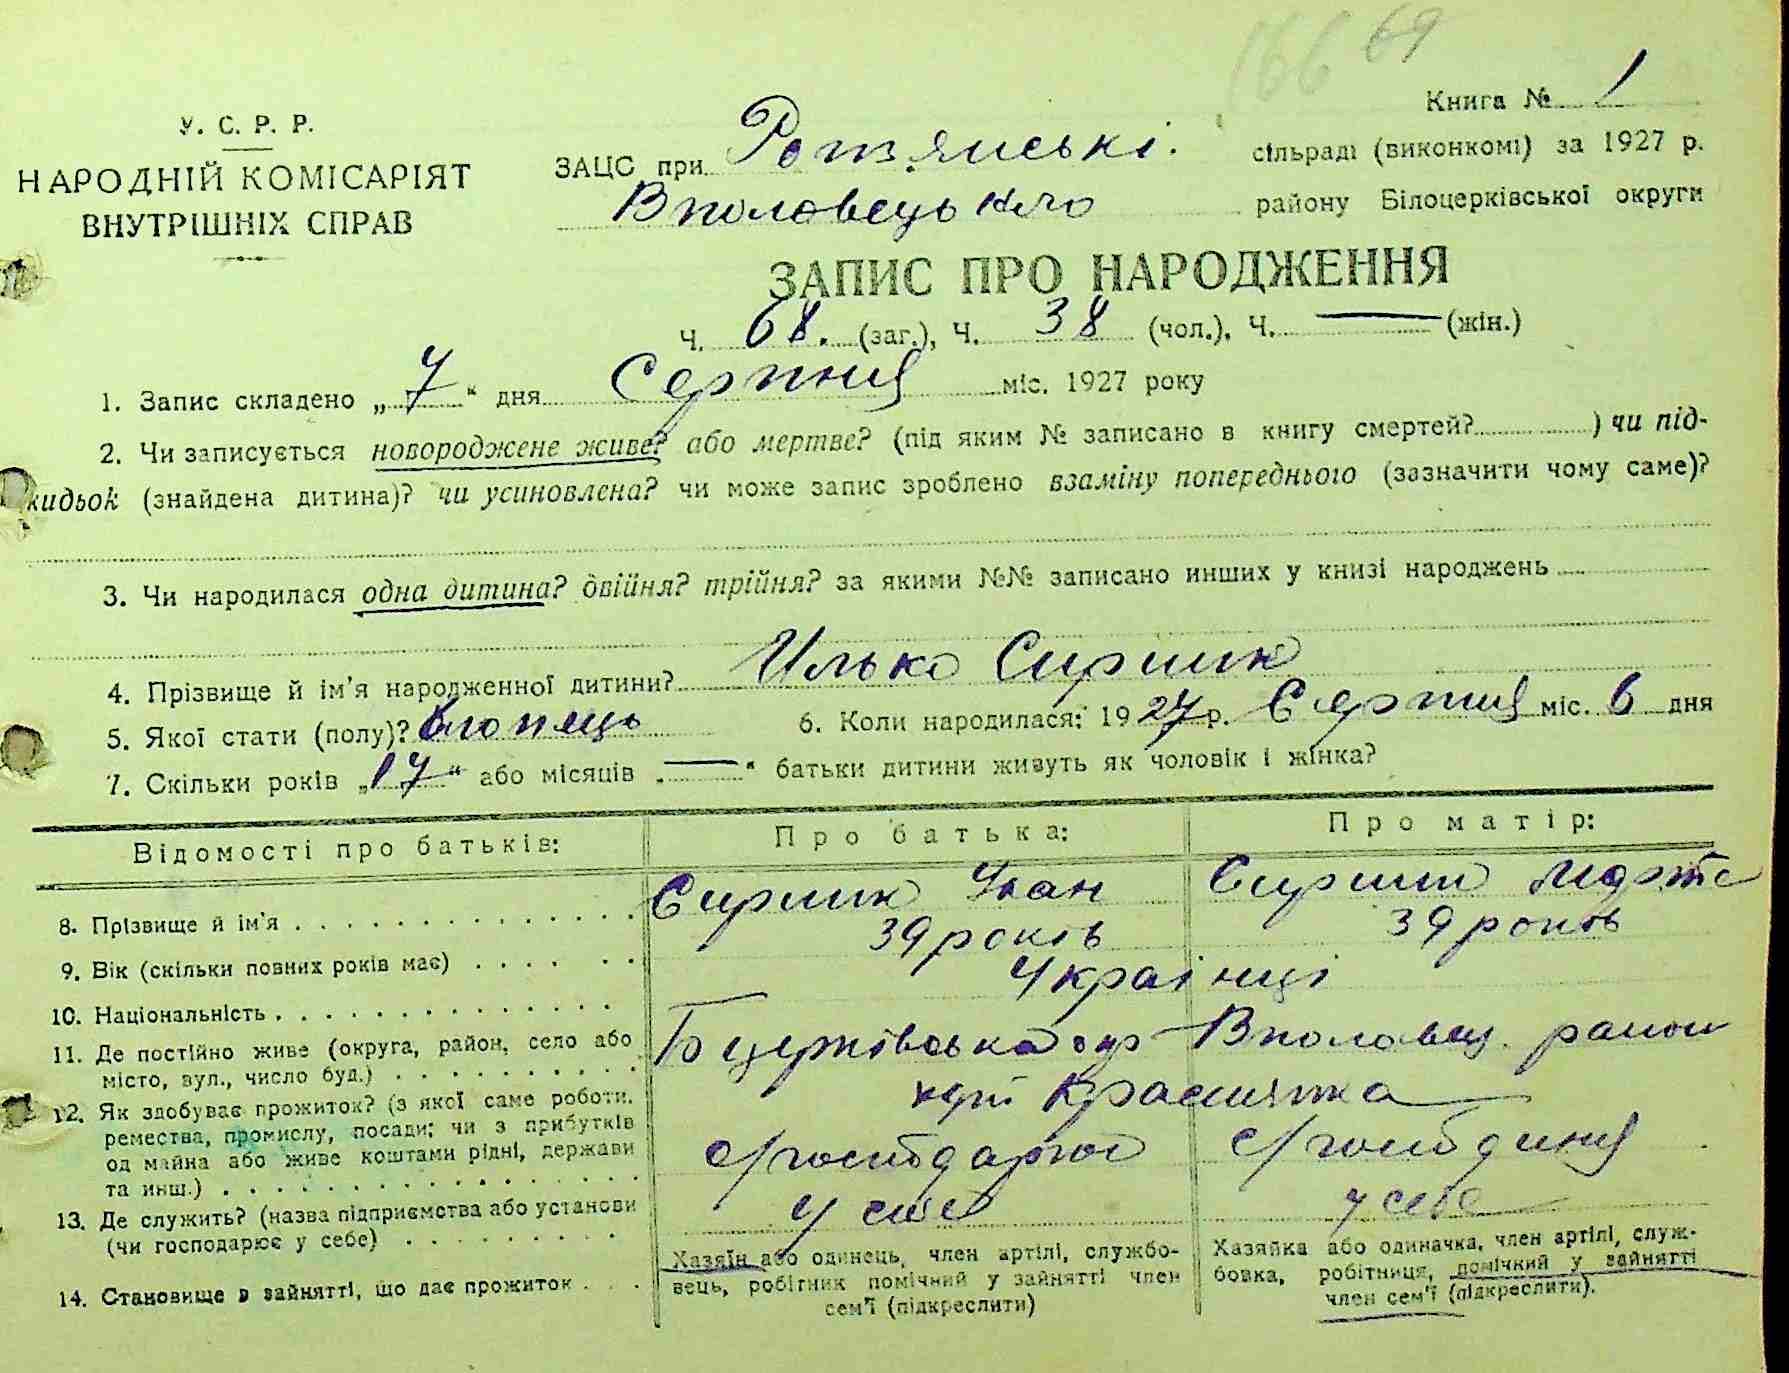 166 69
Книга № 1
У. С. Р. Р.
НАРОДНІЙ КОМІСАРІЯТ
ВНУТРІШНІХ СПРАВ
ЗАЦС при сільраді (виконкомі) за 1927 р.
Вполовецького району Білоцерківської округи
ЗАПИС ПРО НАРОДЖЕННЯ
Ч. 68. (заг.), Ч. 38 (чол.), Ч. — (жін.)
1. Запис складено „7“ дня Серпня міс. 1927 року
2. Чи записується новороджене живе? або мертве? (під яким № записано в книгу смертей? ) чи під-
кидьок (знайдена дитина)? чи усиновлена? чи може запис зроблено взаміну попереднього (зазначити чому саме)?
3. Чи народилася одна дитина? двійня? трійня? за якими №№ записано инших у книзі народжень
4. Прізвище й ім'я народженної дитини? Илько
5. Якої стати (полу)? хлопець 6. Коли народилася: 1927 р. Серпня міс. 6 дня
7. Скільки років „17“ або місяців „—“ батьки дитини живуть як чоловік і жінка?
Відомості про батьків: Про батька: Про матір:
8. Прізвище й ім'я Іван
9. Вік (скільки повних років має) 39 років 39 років
10. Національність Українці
11. Де постійно живе (округа, район, село або
місто, вул., число буд.) Бцерківська окр Вполовец. район
12. Як здобуває прожиток? (з якої саме роботи,
ремества, промислу, посади; чи з прибутків
од майна або живе коштами рідні, держави
та инш.)
13. Де служить? (назва підприємства або установи
(чи господарює у себе) у себе у себе
14. Становище в зайнятті, що дає прожиток
Хазяїн або одинець, член артілі, службо-
вець, робітник помічний у зайнятті член
сем'ї (підкреслити)
Хазяйка або одиначка, член артілі, служ-
бовка, робітниця, помічний у зайнятті
член сем'ї (підкреслити).